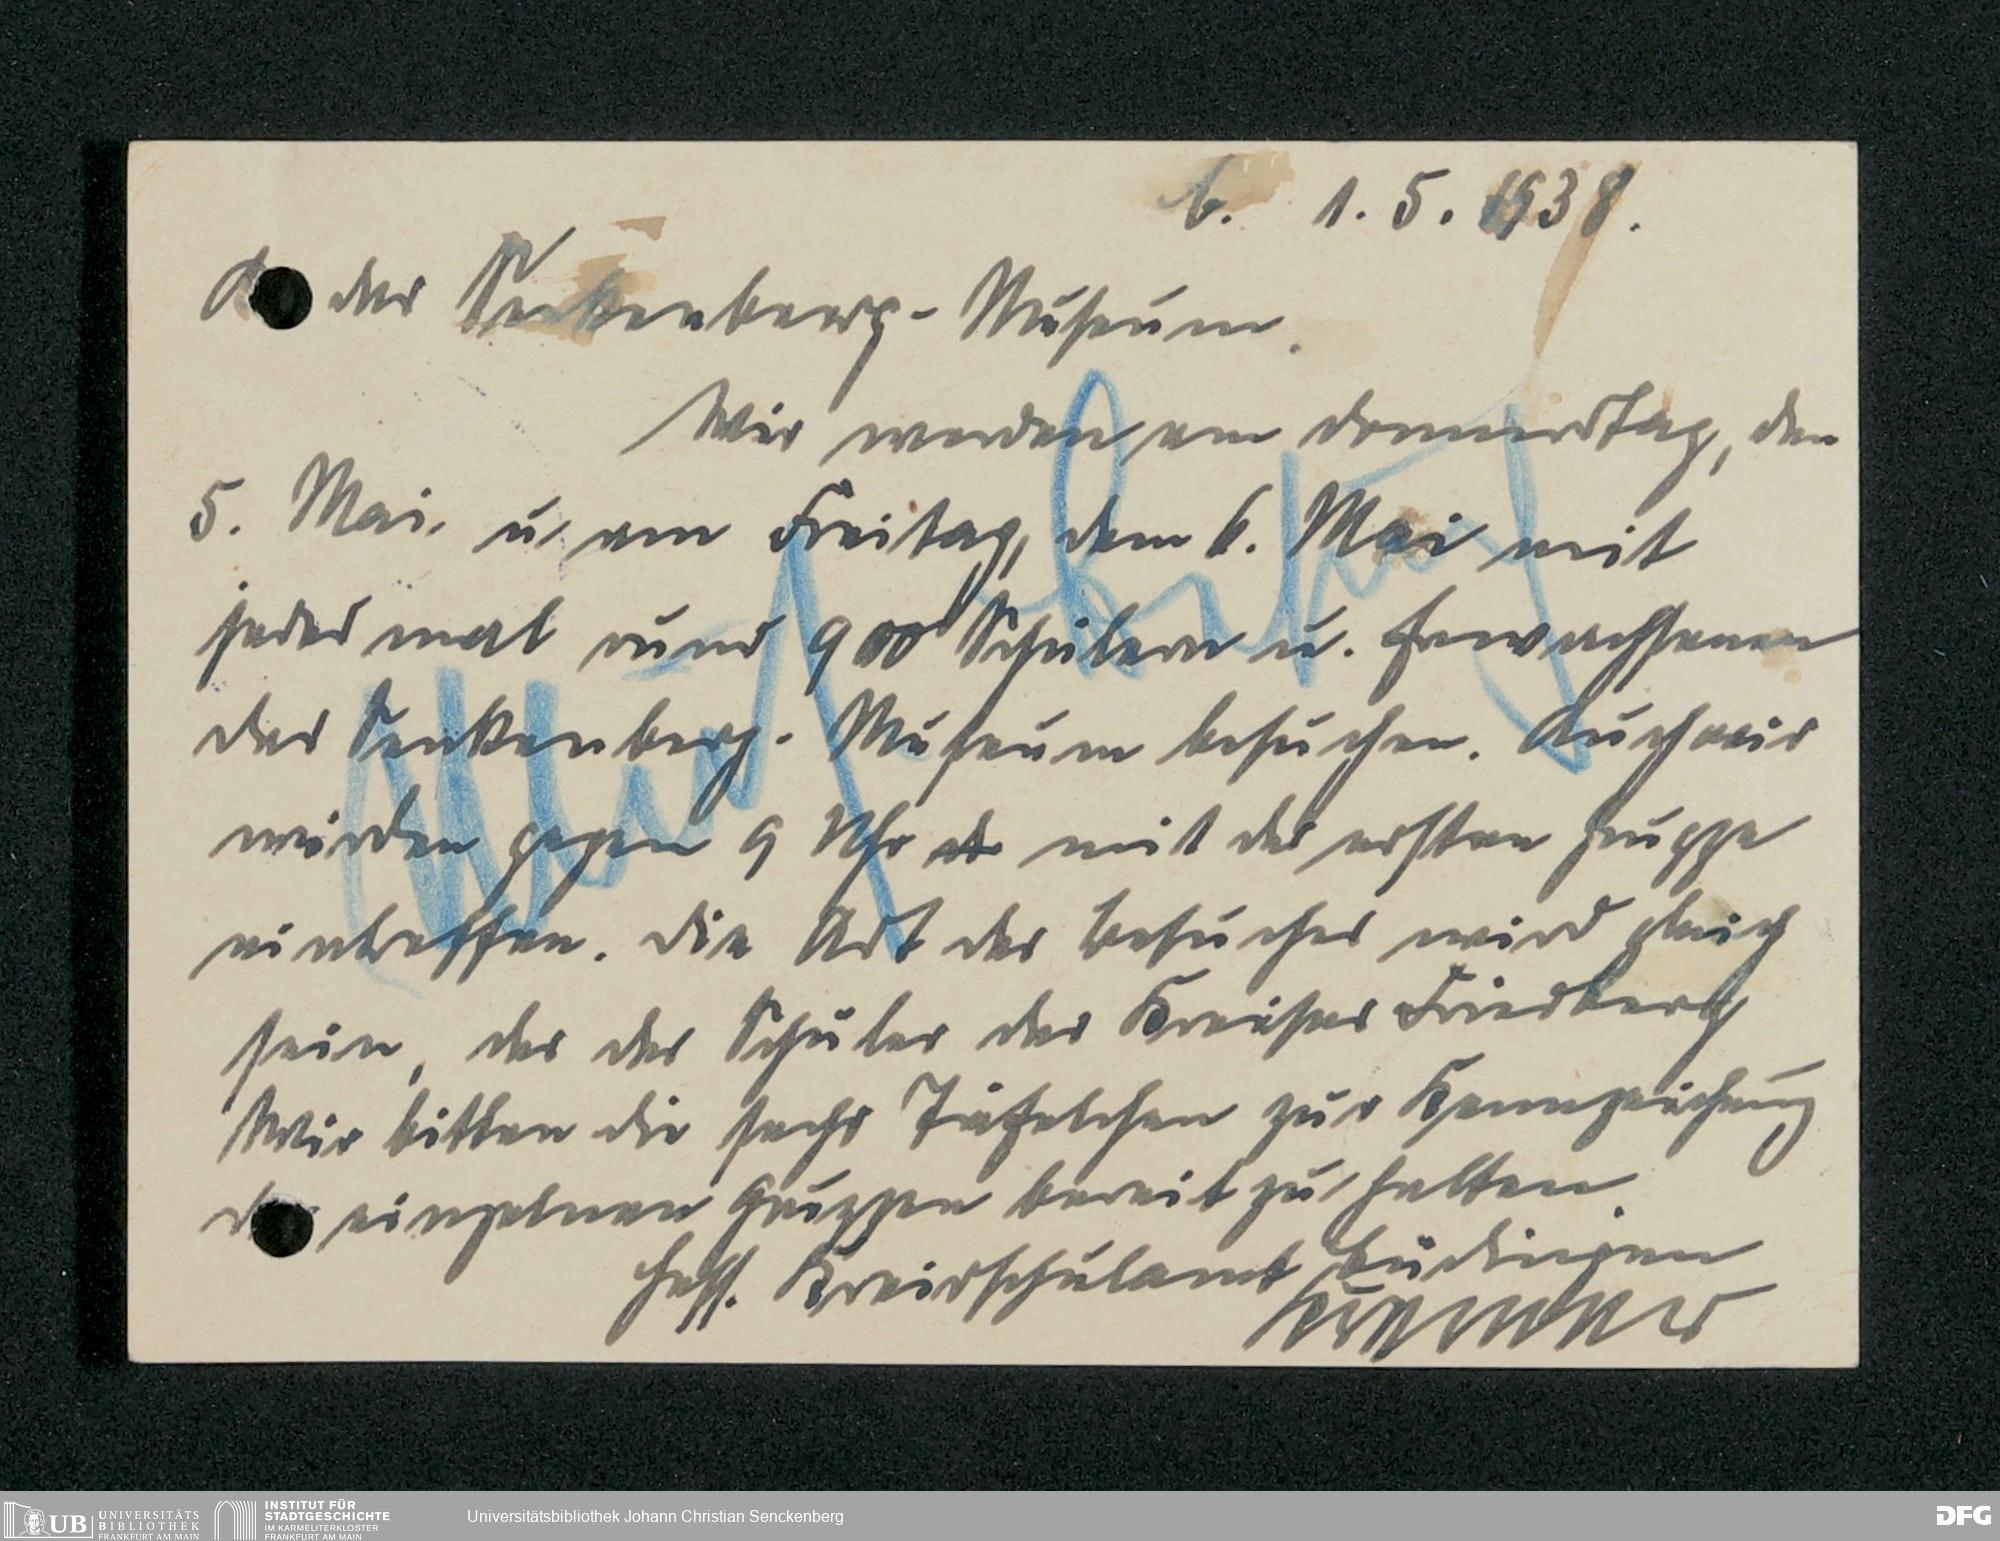 b. 1. 5. 1938.
das Senkenberg-Museum.
Wir werden am Donnerstag, den
5. Mai. u. am Freitag, dem 6. Mai mit
jedesmal rund 900 Schülern u. Erwachsenen
das Senkenberg-Museum besuchen. Auch wir
würden gegen 9 Uhr mit der ersten Gruppe
eintreffen. Die Art des Besuches wird gleich
sein, der der Schüler des Kreises Friedberg
Wir bitten die sechs Täfelchen zur Kennzeichung
einzelnen Gruppen bereit zu halten.
Hess. Kreisschulamt Büdingen
UB UNIVERSITÄTS
BIBLIOTHEK
FRANKFURT AM MAIN
INSTITUT FÜR
STADTGESCHICHTE
IM KARMELITERKLOSTER
FRANKFURT AM MAIN
Universitätsbibliothek Johann Christian Senckenberg
DFG